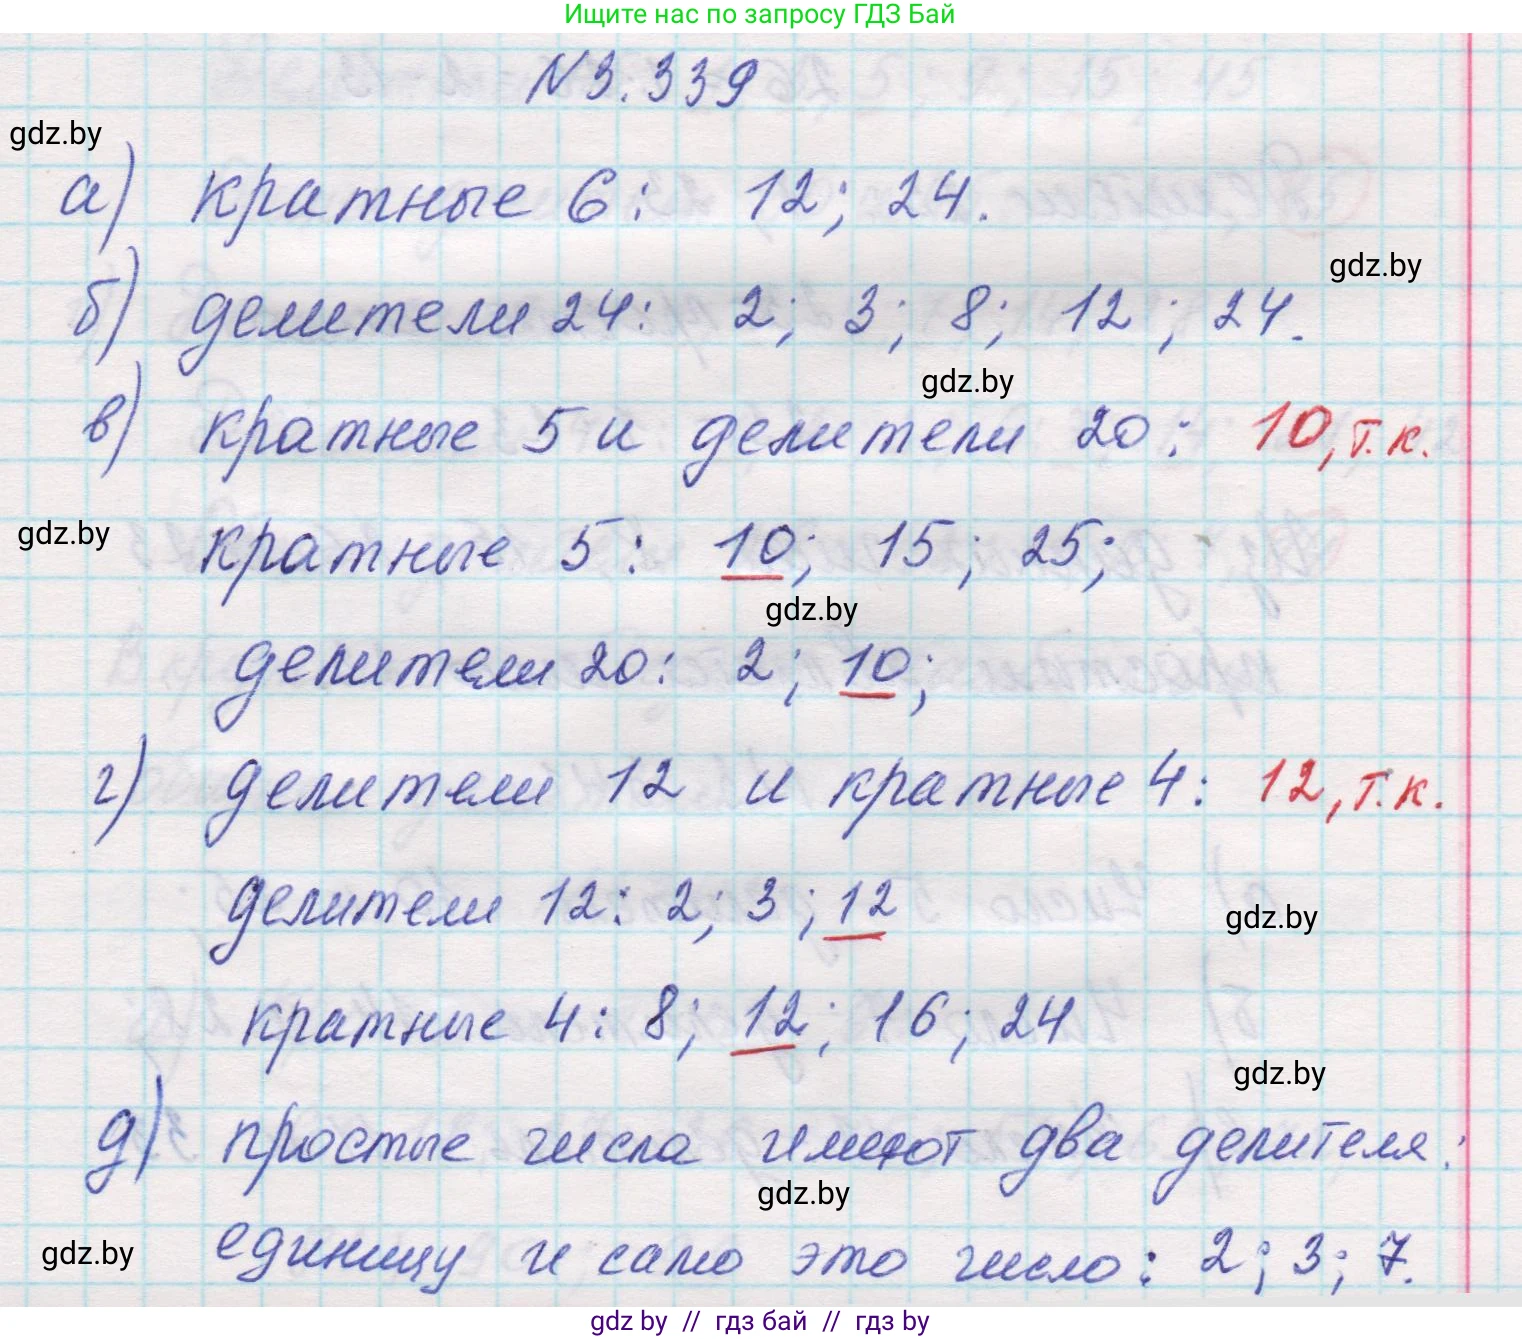 Ищите нас по запросу ГДЗ Бай
N3.339
gdz.by
а) кратные 6: 12; 24.
gdz.by
б) делители 24: 2; 3; 8; 12; 24.
gdz.by
в) кратные 5 и делители 20: 10, т.к.
gdz.by
кратные 5: 10; 15; 25;
gdz.by
делители 20: 2; 10;
г) делители 12 и кратные 4: 12, т.к.
делители 12: 2; 3; 12
gdz.by
кратные 4: 8; 12; 16; 24
gdz.by
д) простые числа имеют два делителя:
gdz.by
единицу и само это число: 2; 3; 7.
gdz.by
gdz by // гдз бай // гдз by